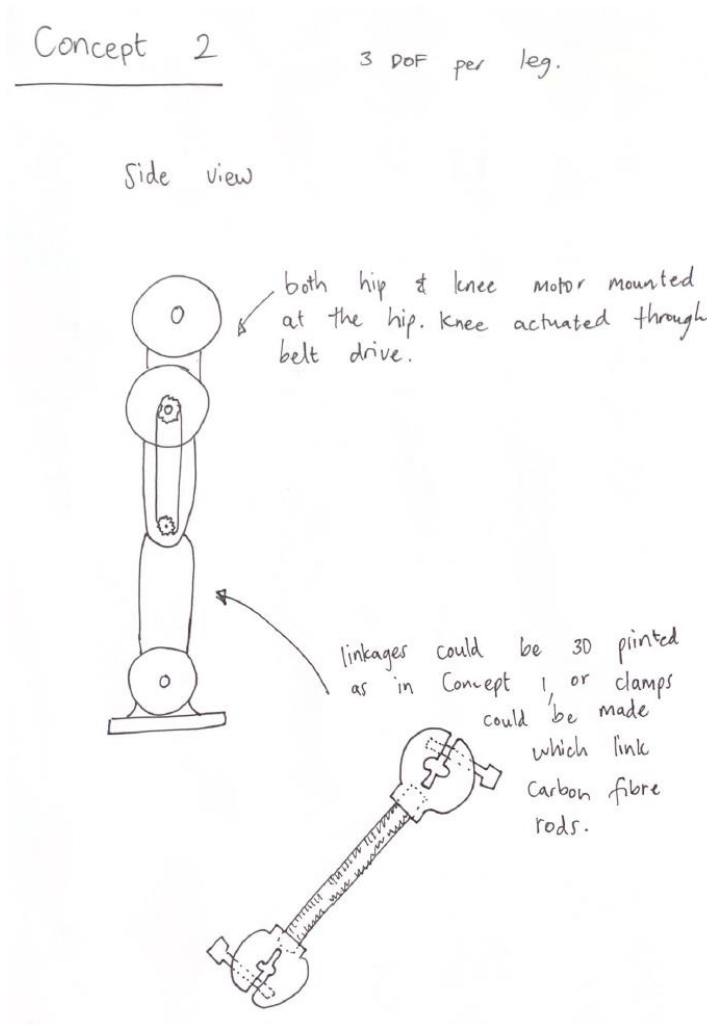 Concept 2
3 DOF per leg.
Side view
both hip & knee motor mounted
at the hip. Knee actuated through
belt drive.
linkages could be 3D printed
as in Concept 1, or clamps
could be made
which link
Carbon fibre
rods.